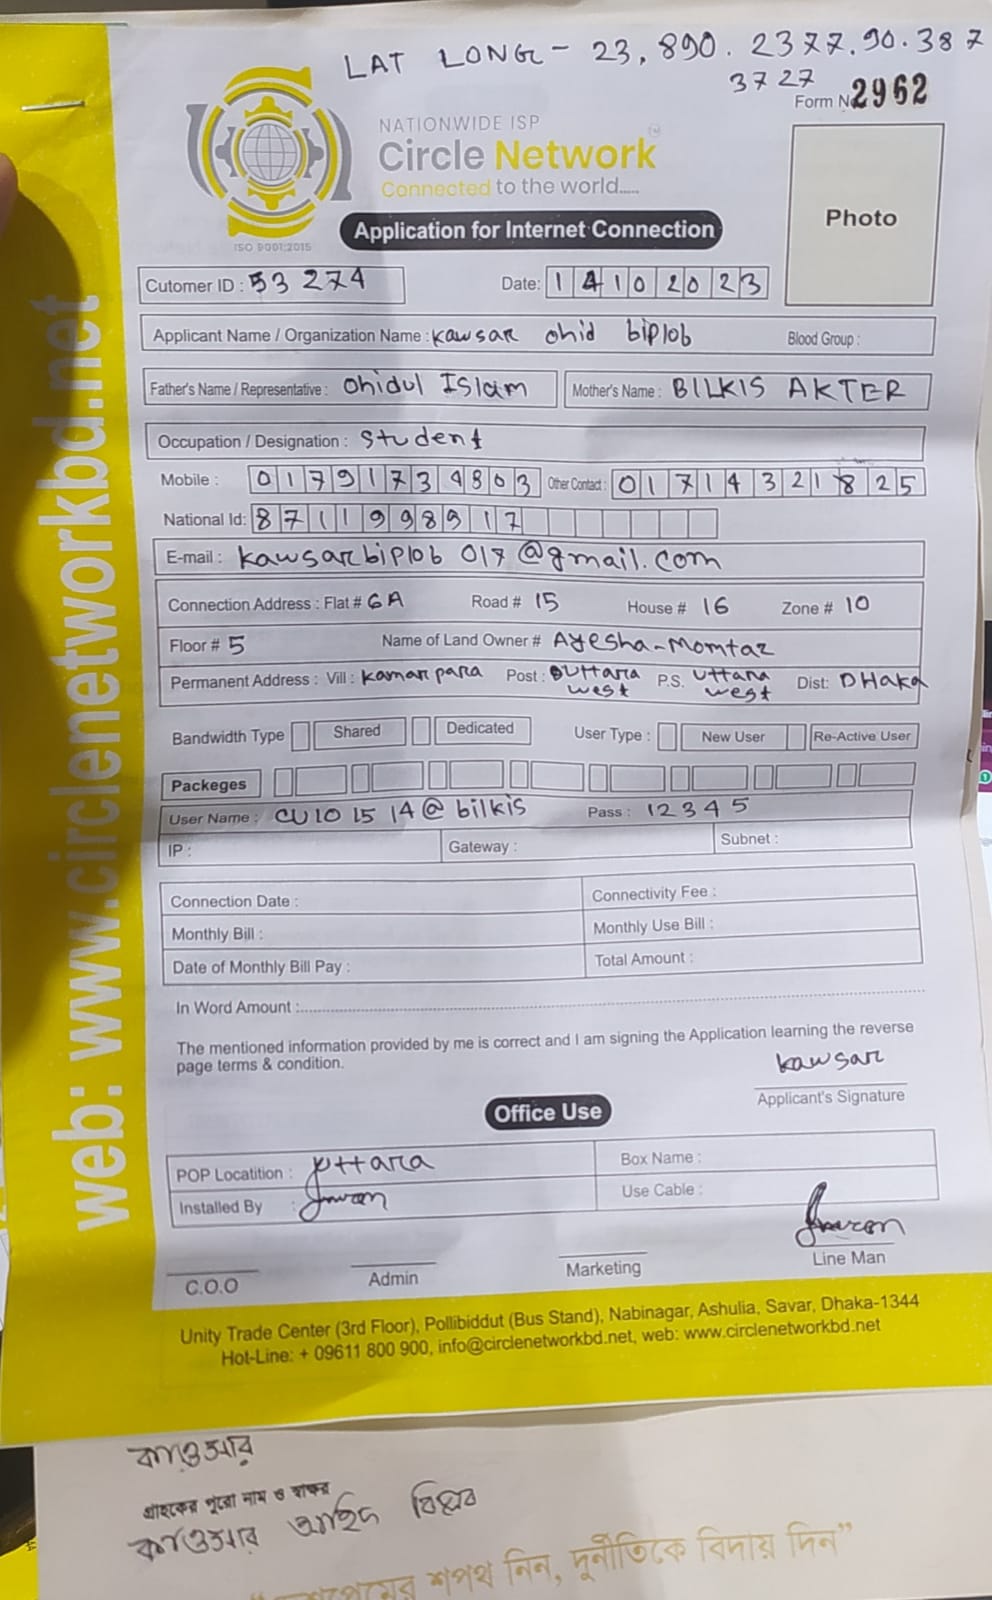 LAT LONG - 23,890.2377.90.387
3727
Form No 2962
NATIONWIDE ISP
Circle Network
Connected to the world.....
ISO 9001:2015
Application for Internet Connection
Photo
Cutomer ID : 53274
Date: 14102023
Applicant Name / Organization Name : Kawsar ohid biplob Blood Group :
Father's Name / Representative : Ohidul Islam Mother's Name : BILKIS AKTER
Occupation / Designation : Student
Mobile : 01791734803 Other Contact : 01714321825
National Id: 8711998917
E-mail : kawsarbiplob017@gmail.com
Connection Address : Flat # 6A Road # 15 House # 16 Zone # 10
Floor # 5 Name of Land Owner # Ayesha-Momtaz
Permanent Address : Vill : kamar para Post : Uttara west P.S. Uttara west Dist: DHaka
Bandwidth Type Shared Dedicated User Type : New User Re-Active User
Packeges
User Name : CU101514@bilkis Pass : 12345
IP : Gateway : Subnet :
Connection Date : Connectivity Fee :
Monthly Bill : Monthly Use Bill :
Date of Monthly Bill Pay : Total Amount :
In Word Amount :
The mentioned information provided by me is correct and I am signing the Application learning the reverse
page terms & condition.
kawsar
Applicant's Signature
Office Use
POP Locatition : Uttara Box Name :
Installed By : Imran Use Cable :
Imran
C.O.O Admin Marketing Line Man
Unity Trade Center (3rd Floor), Pollibiddut (Bus Stand), Nabinagar, Ashulia, Savar, Dhaka-1344
Hot-Line: + 09611 800 900, info@circlenetworkbd.net, web: www.circlenetworkbd.net
web: www.circlenetworkbd.net
কাওসার
গ্রাহকের পুরো নাম ও স্বাক্ষর
কাওসার অহিদ বিপ্লব
শপথ নিন, দুর্নীতিকে বিদায় দিন”